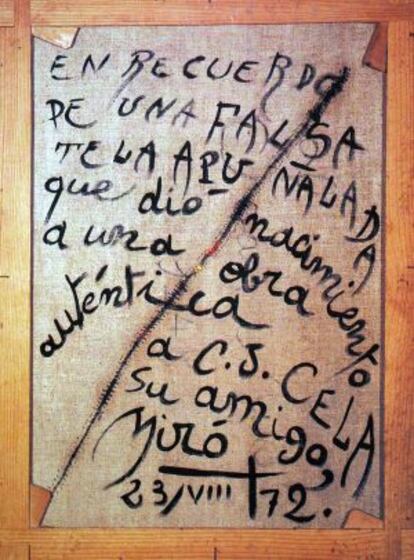 EN RECUERDO
DE UNA FALSA
TELA APUÑALADA
que dió nacimiento
a una obra
auténtica
a C.J. CELA
su amigo,
Miró
23/VIII/72.